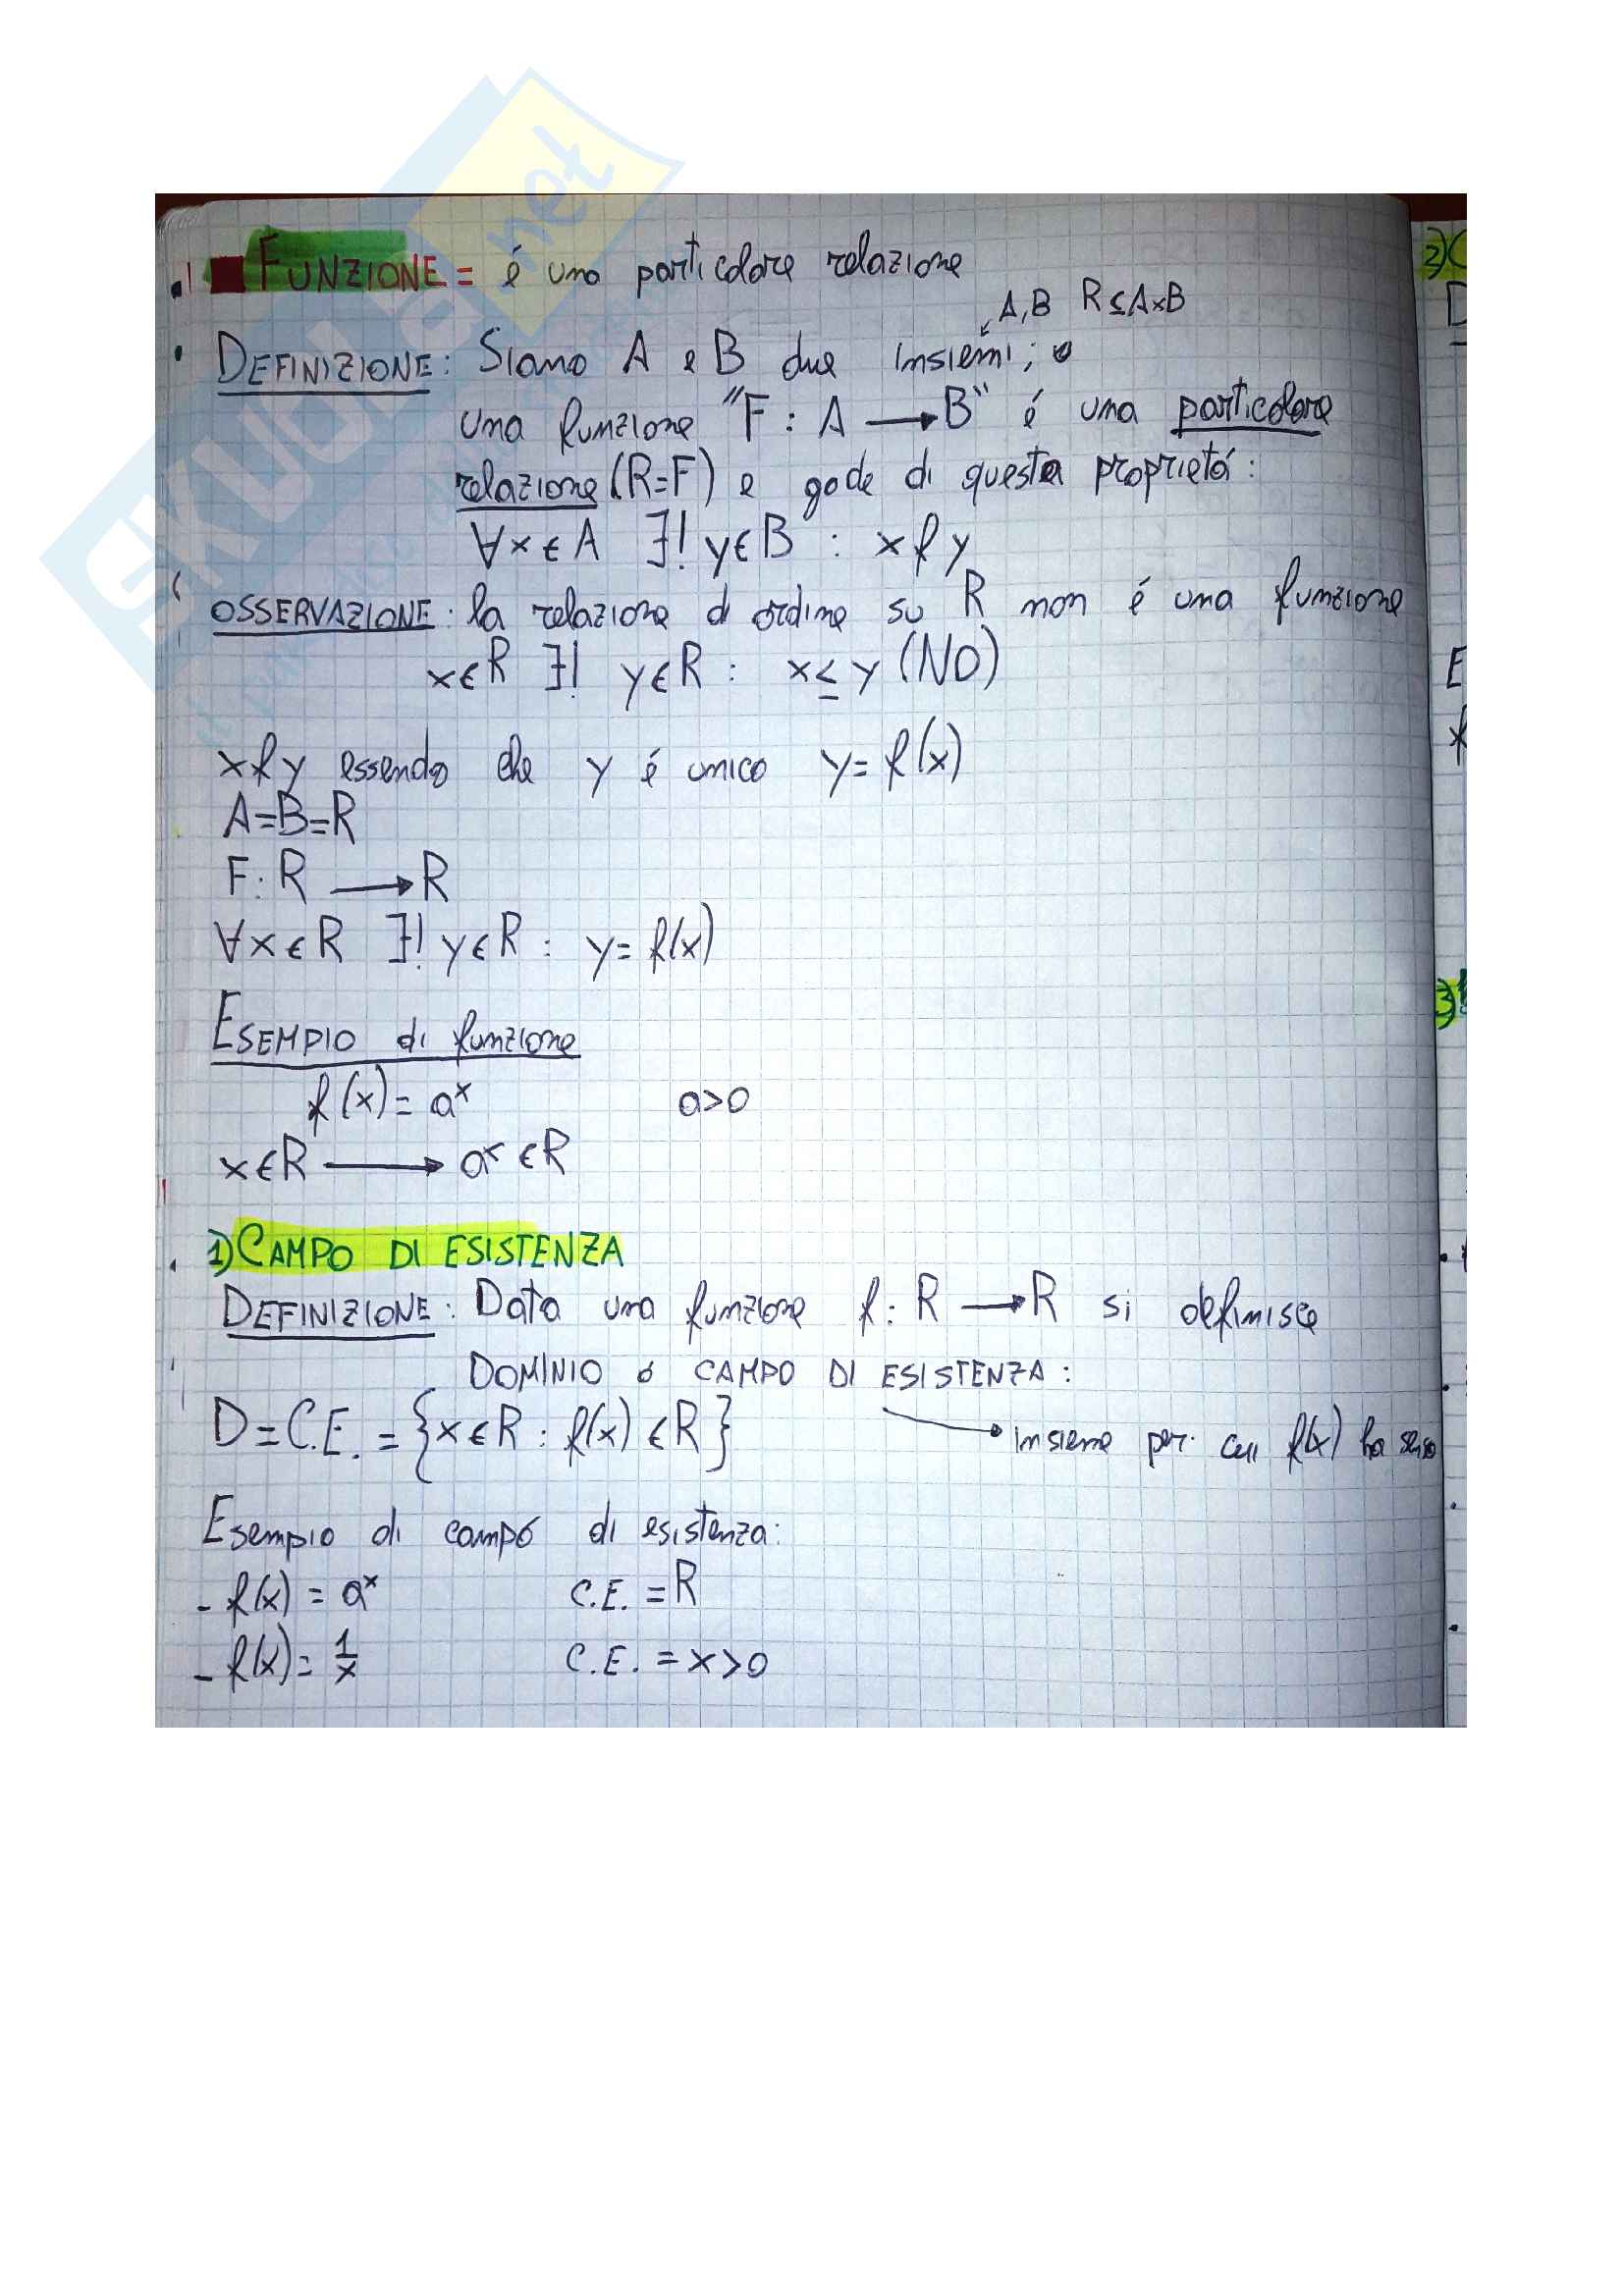 FUNZIONE = é una particolare relazione
A,B R⊆A×B
DEFINIZIONE: Siano A e B due insiemi;
una funzione "F : A → B" é una particolare
relazione (R=F) e gode di questa proprietá:
∀x∈A ∃! y∈B : x f y
OSSERVAZIONE: la relazione di ordine su R non é una funzione
x∈R ∃! y∈R : x≤y (NO)
x f y essendo che y é unico y= f(x)
A=B=R
F: R → R
∀x∈R ∃! y∈R : y= f(x)
ESEMPIO di funzione
f(x)= aˣ a>0
x∈R → aˣ ∈R
1) CAMPO DI ESISTENZA
DEFINIZIONE: Data una funzione f: R → R si definisce
DOMINIO ó CAMPO DI ESISTENZA:
D=C.E. = {x∈R : f(x) ∈R}
→ insieme per cui f(x) ha senso
Esempio di campó di esistenza:
- f(x) = aˣ C.E. = R
- f(x)= 1/x C.E. = x>0
2)
3)
SKUOLA.net